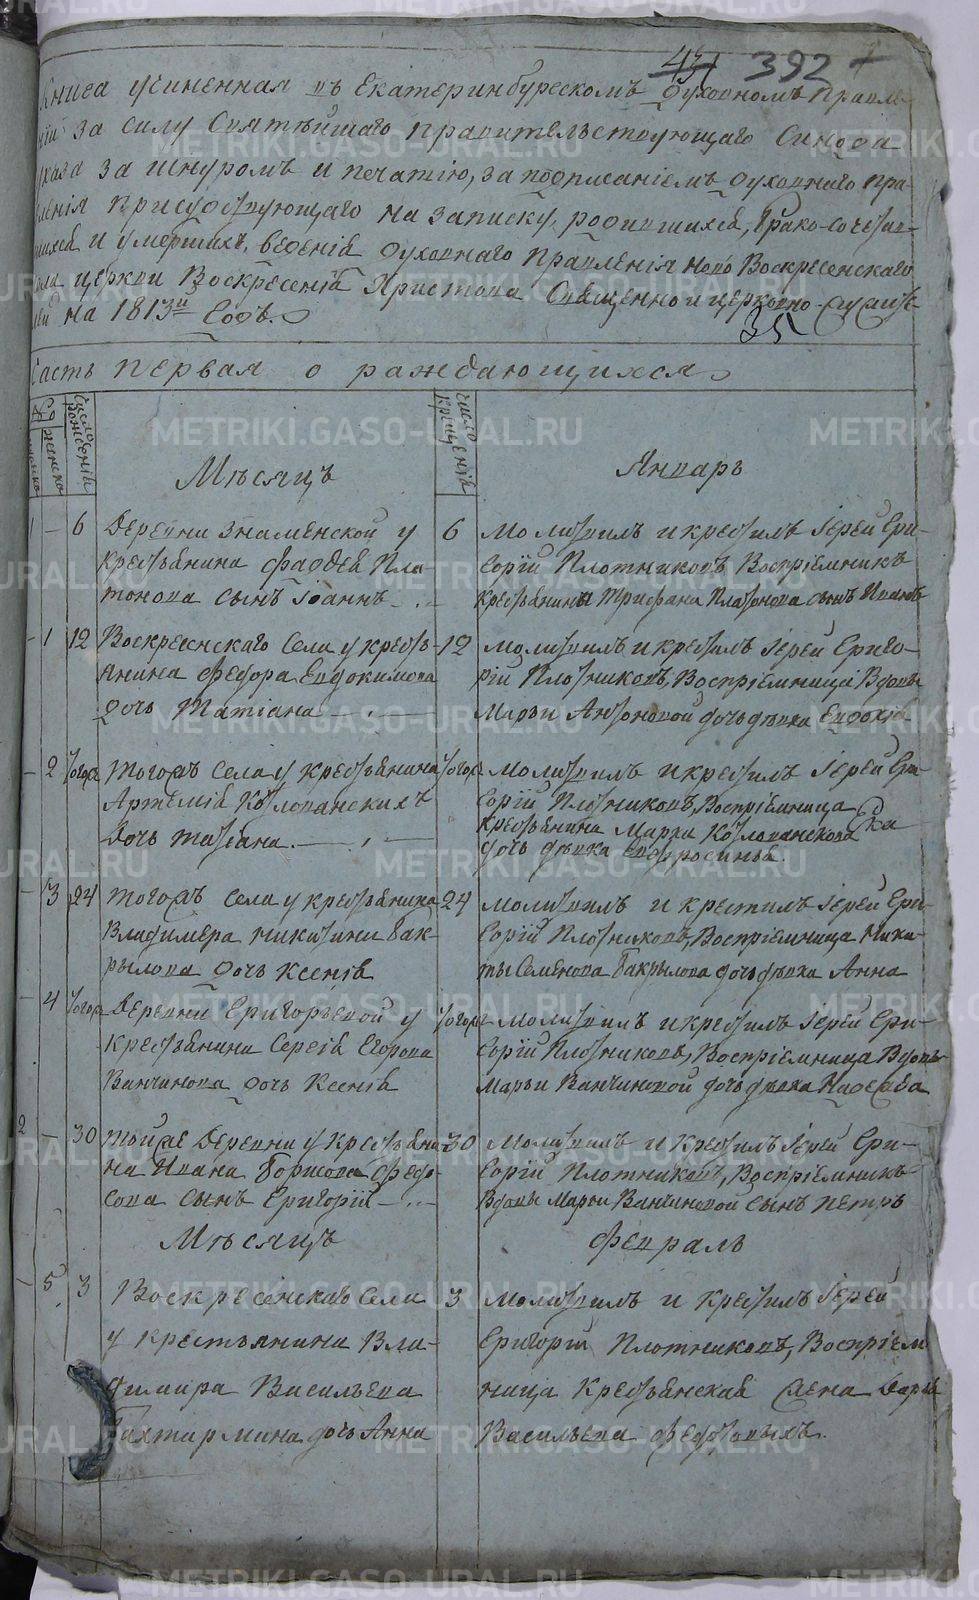 431 392 7
Книга учиненная въ Екатеринбургскомъ Духовномъ Правле-
нїи за силу Святѣйшаго правительствующаго Синода
указа за шнуромъ и печатїю, за подписанїемъ духовнаго пра-
вленїя присудствующаго на записку родившихся, брако-сочетав-
шихся и умершихъ, веденїя духовнаго Правленїя Ново Воскресенскаго
села церкви Воскресенїя Христова Священно и церковно-служите-
лей на 1813й Годъ.
35
Часть первая о раждающихся
число рожденїй
женска
число крещенїй
Мѣсяцъ
Январь
1 — 6 Деревни Знаменской у
крестьянина Фаддея Пла-
тонова сынъ Іоаннъ
6 Молитвилъ и крестилъ Іерей Гри-
горїй Плотниковъ Воспрїемникъ
крестьянина Трифана Платонова сынъ Иванъ
— 1 12 Воскресенскаго Села у кресть-
янина Федора Евдокимова
дочь Татїана
12 Молитвилъ и крестилъ Іерей Григо-
рїй Плотниковъ, Воспрїемница Вдовы
Марьи Антоновой дочь дѣвка Евдокїя
— 2 Тогож Тогожъ Села у крестьянина
Артемїя Козлованскихъ
Дочь Татїана
Тогож Молитвилъ и крестилъ Іерей Гри-
горїй Плотниковъ, Воспрїемница
крестьянина Марка Козлованскова
дочь дѣвка Евфросинья
— 3 24 Тогожъ Села у крестьянина
Владимера Никитина Бак-
рылова дочь Ксенїя
24 Молитвилъ и крестилъ Іерей Гри-
горїй Плотниковъ, Воспрїемница Ники-
ты Семенова Бакрылова дочь дѣвка Анна
— 4 Тогож Деревни Григорьевой у
крестьянина Сергїя Егорова
Ванчинова дочь Ксенїя
Тогож Молитвилъ и крестилъ Іерей Гри-
горїй Плотниковъ, Воспрїемница Вдовы
Марьи Ванчиновой дочь дѣвка Надежда
2 — 30 Тойже Деревни у крестьяни-
на Ивана Борисова Федо-
сова сынъ Григорїй
30 Молитвилъ и крестилъ Іерей Гри-
горїй Плотниковъ, Воспрїемникъ
Вдовы Марьи Ванчиновой сынъ Петръ
Мѣсяцъ
Февраль
— 5 3 Воскресенскаго Села
у крестьянина Вла-
димира Васильева
Бахтирмина дочь Анна
3 Молитвилъ и крестилъ Іерей
Григорїй Плотниковъ, Воспрїем
ница Крестьянская Жена Дарья
Васильева Федотовыхъ.